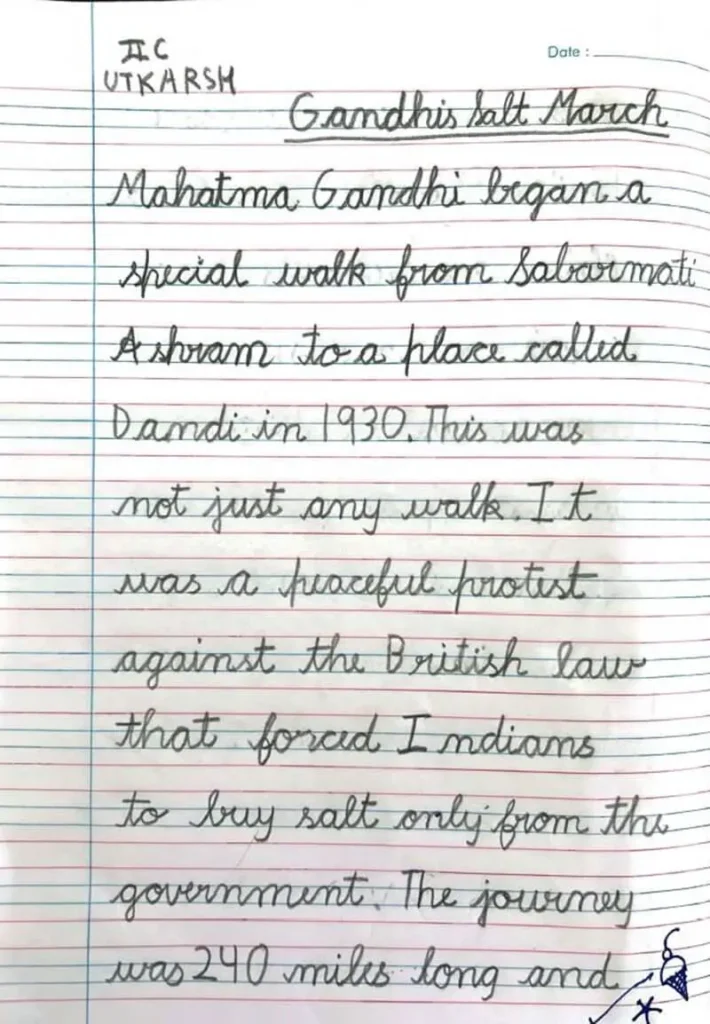 II C
UTKARSH
Date :
Gandhis Salt March
Mahatma Gandhi began a
special walk from Sabarmati
Ashram to a place called
Dandi in 1930. This was
not just any walk. It
was a peaceful protest
against the British law
that forced Indians
to buy salt only from the
government. The journey
was 240 miles long and